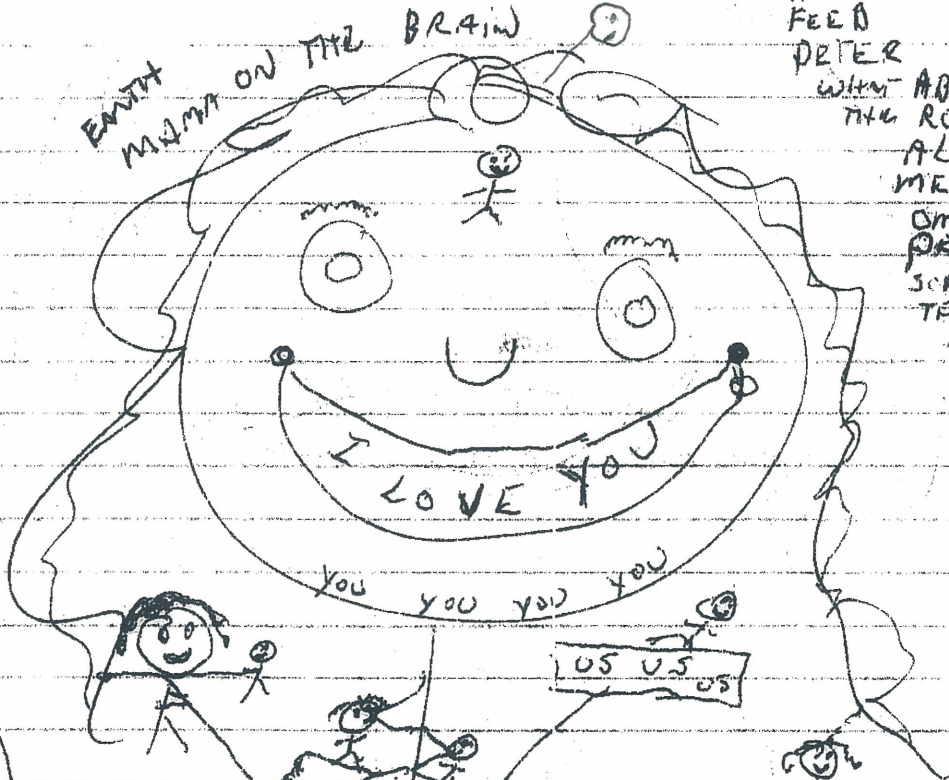 EARTH
MAMA ON THE BRAIN
FEED
PETER
WHAT AB
THE
AL
ME
I LOVE YOU
YOU YOU YOU YOU
US US US